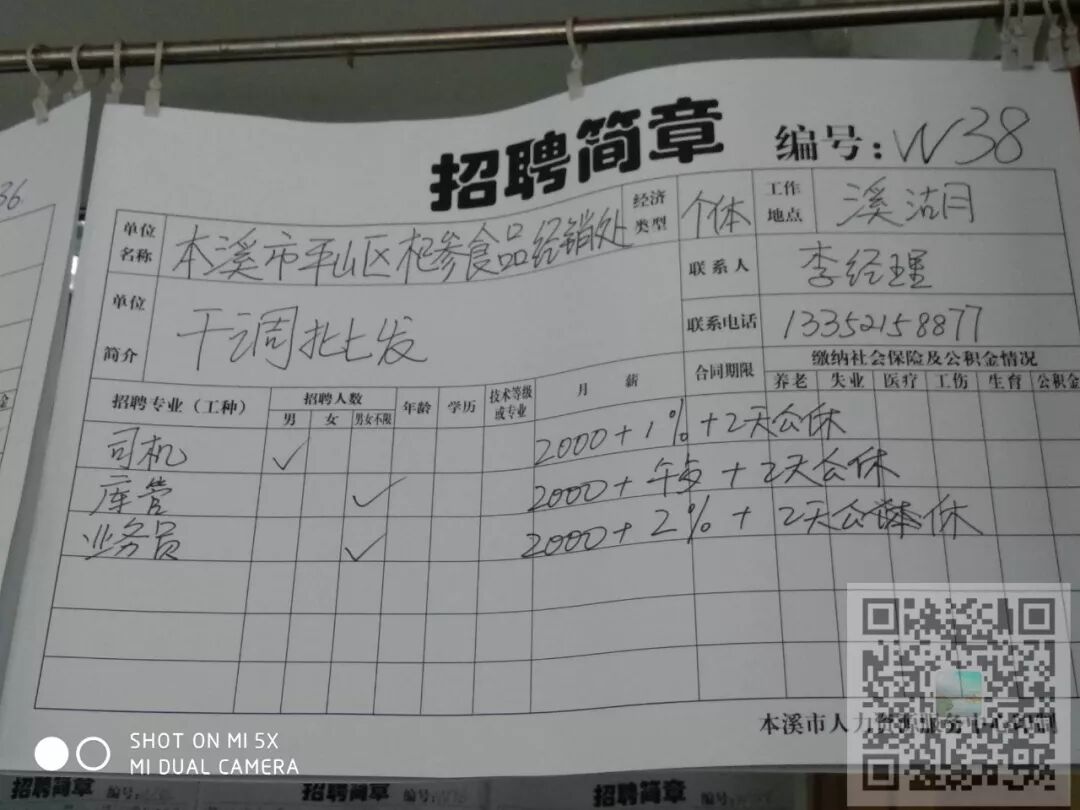 36
招聘简章
编号:W38
单位名称 本溪市平山区杞参食品经销处 经济类型 个体 工作地点 溪湖
联系人 李经理
单位简介 干调批发
联系电话 13352158877
招聘专业(工种) 招聘人数 年龄 学历 技术等级或专业 月薪 合同期限 缴纳社会保险及公积金情况
男 女 男女不限 养老 失业 医疗 工伤 生育 公积金
司机 ✓ 2000+1%+2天公休
库管 ✓ 2000+ +2天公休
业务员 ✓ 2000+2%+2天公休
本溪市人力资源服务中心印制
SHOT ON MI 5X
MI DUAL CAMERA
招聘简章 编号: 招聘简章 编号: 招聘简章